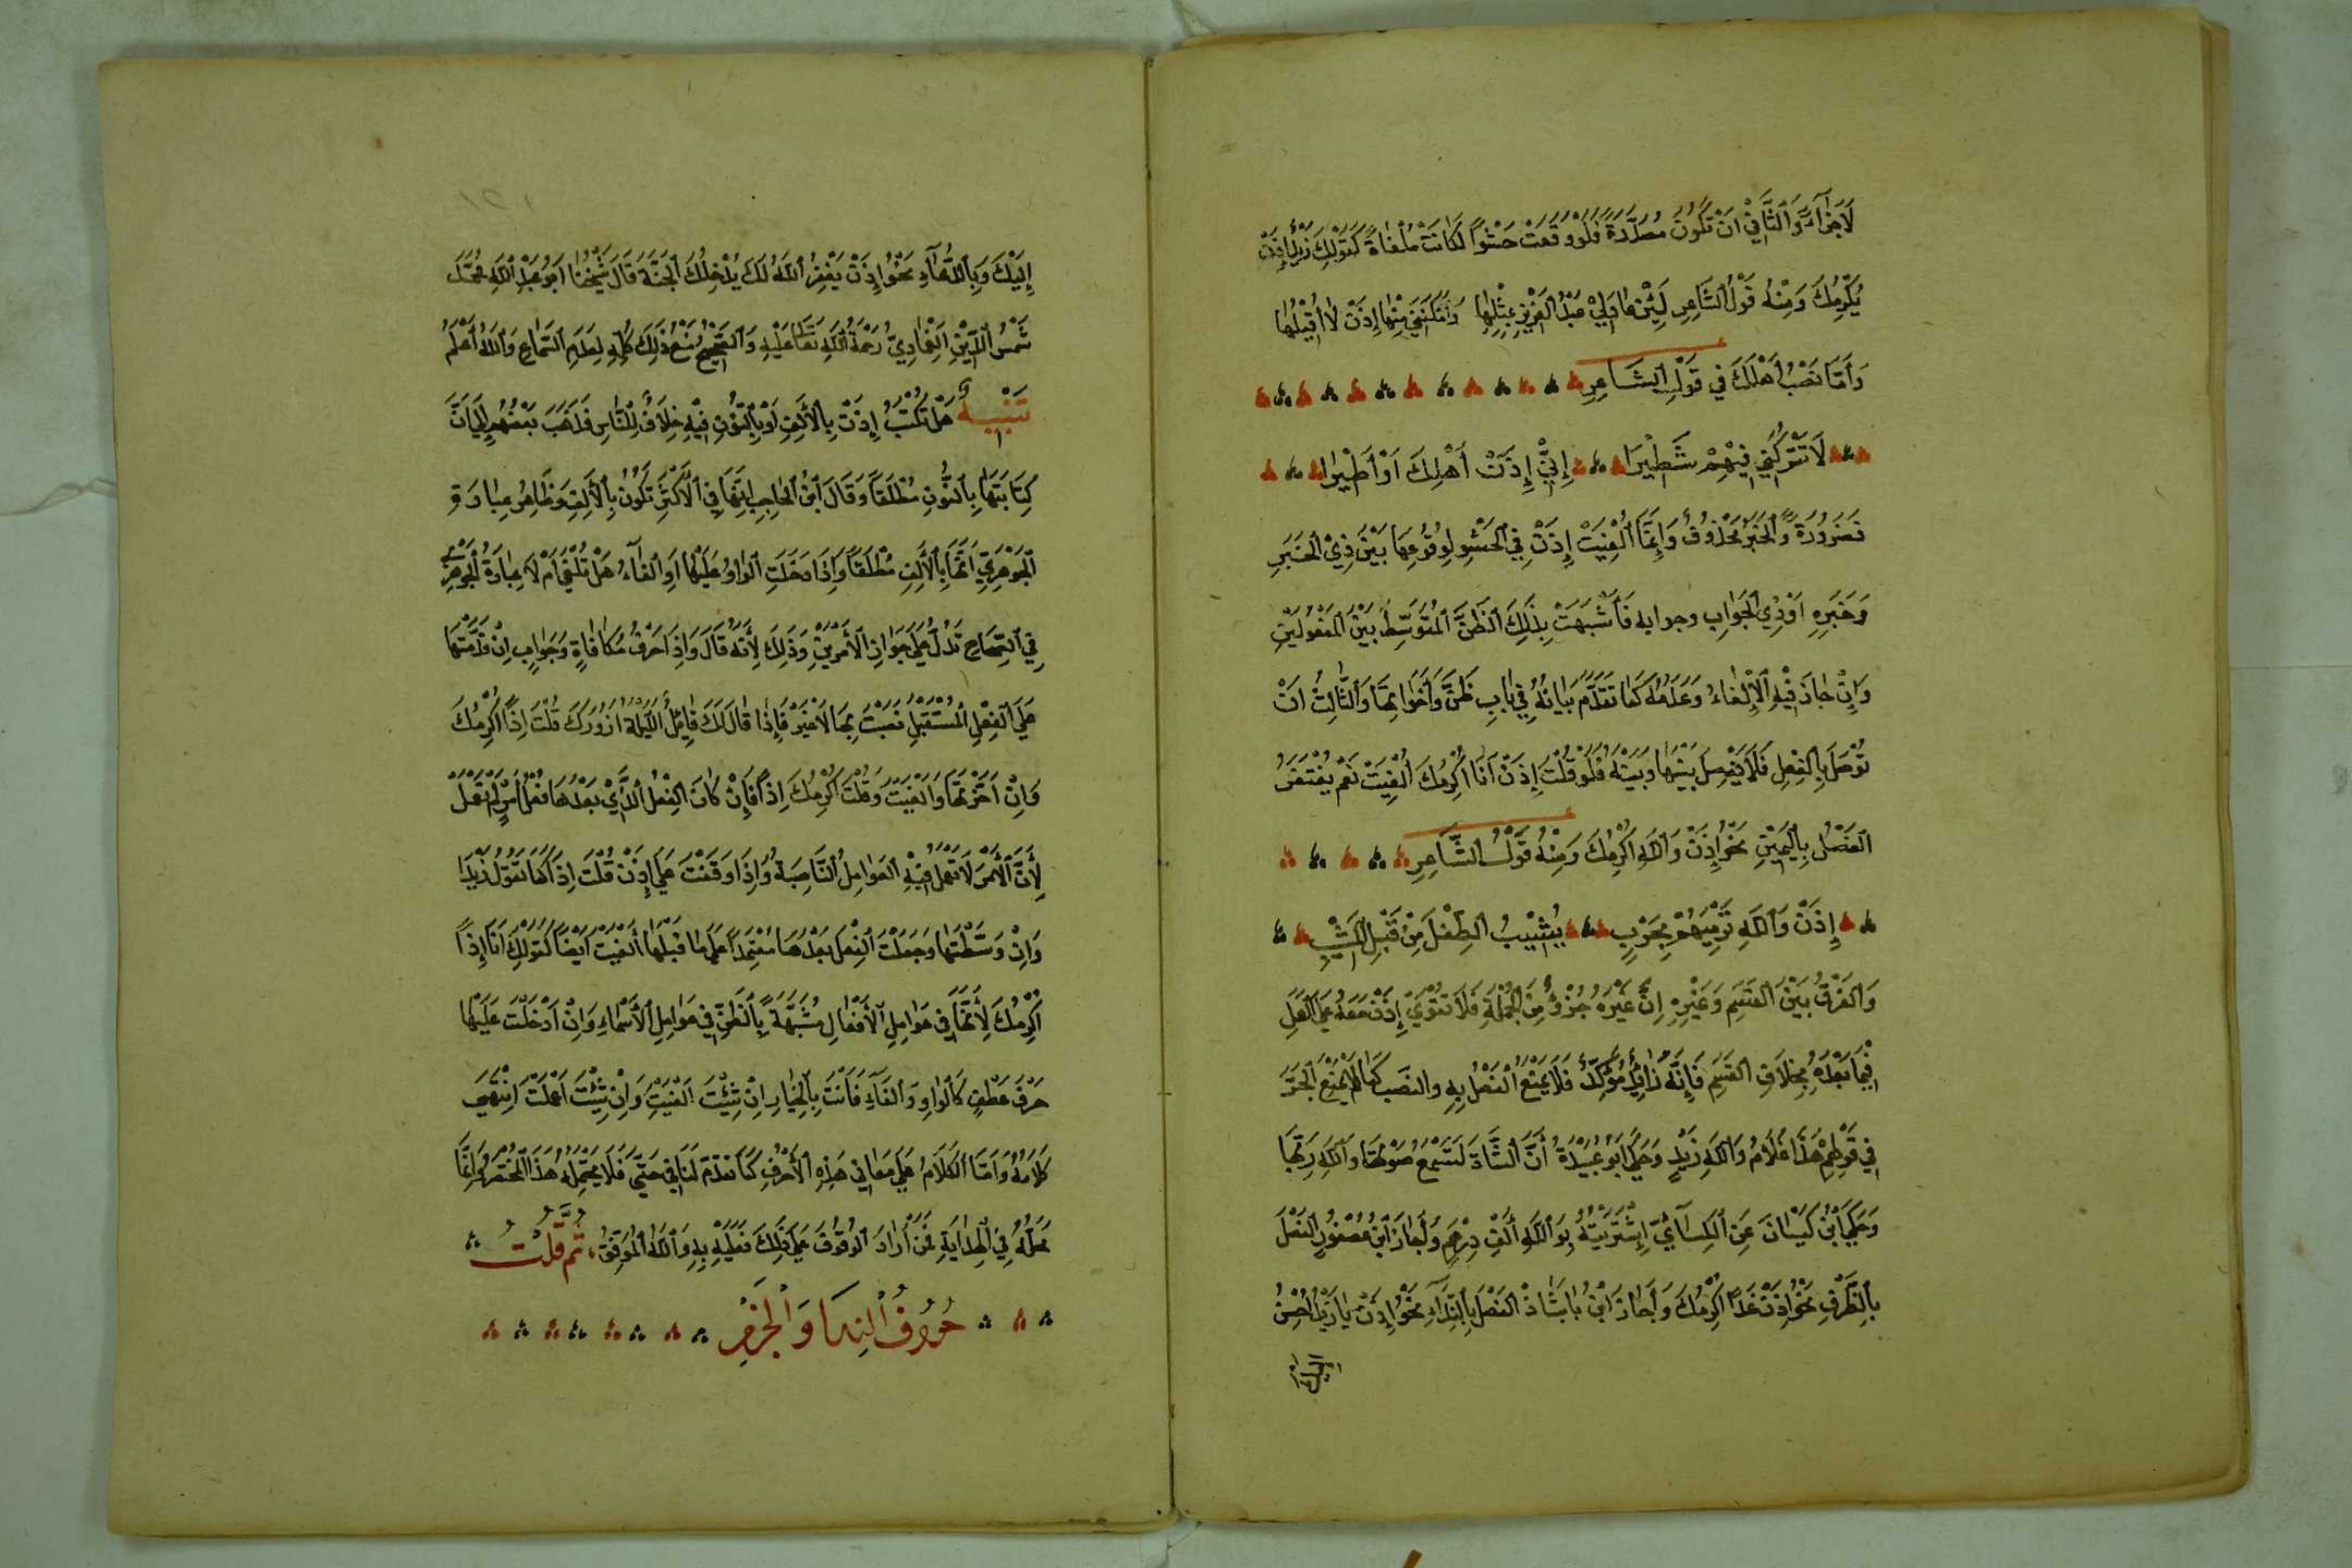 لَاجَزَآءَ وَالثَّانِي اَنْ تَكُوْنَ مُصَدَّرَةً فَلَوْ وَقَعَتْ حَشْوًا لَكَانَتْ مُلْغَاةً كَقَوْلِكَ زَيْدٌ إِذَنْ
يُكْرِمُكَ وَمِنْهُ قَوْلُ الشَّاعِرِ لَئِنْ عَادَ لِيْ عَبْدُ الْعَزِيْزِ بِمِثْلِهَا وَاَمْكَنَنِيْ مِنْهَا إِذَنْ لَا اُقِيْلُهَا
وَأَمَّا نَصْبُ أَهْلِكَ فِي قَوْلِ الشَّاعِرِ
لَا تَتْرُكَنِّي فِيْهِمْ شَطِيْرَا إِنِّيْ إِذَنْ أَهْلِكَ اَوْ أَطِيْرَا
فَضَرُوْرَةٌ وَالْخَبَرُ مَحْذُوْفٌ وَإِنَّمَا اُلْغِيَتْ إِذَنْ فِي الْحَشْوِ لِوُقُوْعِهَا بَيْنَ ذِيْ الْخَبَرِ
وَخَبَرِهِ اَوْ ذِي الْجَوَابِ وجوابه فَأَشْبَهَتْ بِذَلِكَ الظَنَّ الْمُتَوَسِّطَ بَيْنَ الْمَفْعُوْلَيْنِ
وَإِنْ جَازَ فِيْهِ الْاِلْغَاءُ وَعَدَمُهُ كَمَا تَقَدَّمَ بَيَانُهُ فِي بَابِ ظَنَّ وَأَخَوَاتِهَا وَالثَّالِثُ اَنْ
تُوْصَلَ بِالْفِعْلِ فَلَا يُفْصَلَ بَيْنَهَا وَبَيْنَهُ فَلَوْ قُلْتَ إِذَنْ أَنَا اُكْرِمُكَ اُلْغِيَتْ نَعَمْ يُغْتَفَرُ
الْفَصْلُ بِالْيَمِيْنِ نَحْوُ إِذَنْ وَاللهِ اُكْرِمَكَ وَمِنْهُ قَوْلُ الشَّاعِرِ
إِذَنْ وَاللهِ نَرْمِيَهُمْ بِحَرْبٍ يُشِيْبُ الطِّفْلَ مِنْ قَبْلِ الْمَشِيْبِ
وَالْفَرْقُ بَيْنَ الْقَسَمِ وَغَيْرِهِ اِنَّ غَيْرَهُ جُزْءٌ مِنَ الْجُمْلَةِ فَلَا تَقْوَيْ إِذَنْ مَعَهُ عَلَى الْعَمَلِ
فِيْمَا بَعْدَهُ بِخِلَافِ الْقَسَمِ فَإِنَّهُ زَائِدٌ مُؤَكِّدٌ فَلَا يَمْنَعُ الْفَصْلُ بِهِ والنصَب كَمَا لَا يَمْنَعُ الْجَرَّ
فِي قَوْلِهِمْ هَذَا غُلَامُ وَاللهِ زَيْدٍ وَحَكَى اَبُوْ عُبَيْدَةَ أَنَّ الشَّاةَ لَتَسْمَعُ صَوْتَهَا وَاللهِ رَبِّهَا
وَحَكَى ابْنُ كَيْسَانَ عَنِ الْكِسَآئِيِّ اِشْتَرَيْتُهُ بِوَاللهِ أَلْفِ دِرْهَمٍ وَأَجَازَ ابْنُ عُصْفُوْرٍ الْفَصْلَ
بِالظَّرْفِ نَحْوُ إِذَنْ غَدًا اُكْرِمَكَ وَأَجَازَ ابْنُ بَابْشَاذْ الْفَصْلَ بِالنِّدَآءِ نَحْوُ إِذَنْ يَا زَيْدُ اُحْسِنُ
إِلَيْكَ وَبِالدُّعَآءِ نَحْوُ إِذَنْ يَغْفِرُ اللهُ لَكَ يُدْخِلُكَ الْجَنَّةَ قَالَ شَيْخُنَا اَبُوْ عَبْدِ اللهِ مُحَمَّد
شَمْسُ الدِّيْنِ الْغُمَارِيُّ رَحْمَةُ اللهِ تَعَالَى عَلَيْهِ وَالصَّحِيْحُ مَنْعُ ذَلِكَ كُلِّهِ لِعَدَمِ السَّمَاعِ وَاللهُ أَعْلَمُ
تَنْبِيْهٌ هَلْ تُكْتَبُ إِذَنْ بِالْأَلِفِ اَوْ بِالنُّوْنِ فِيْهِ خِلَافٌ لِلنَّاسِ فَذَهَبَ بَعْضُهُمْ إِلَى أَنَّ
كِتَابَتَهَا بِالنُّوْنِ مُطْلَقًا وَقَالَ ابْنُ الْحَاجِبِ اِنَّهَا فِي الْاَكْثَرِ تَكُوْنُ بِالْأَلِفِ وَظَاهِرُ عِبَارَةِ
الْجَوْهَرِيِّ أَنَّهَا بِالْأَلِفِ مُطْلَقًا وَإِذَا دَخَلَتِ الْوَاوُ عَلَيْهَا اَوِ الْفَآءُ هَلْ تُلْغَى اَمْ لَا عِبَارَةُ الْجَوْهَرِيِّ
فِي الصِّحَاحِ تَدُلُّ عَلَى جَوَازِ الْأَمْرَيْنِ وَذَلِكَ لِأَنَّهُ قَالَ وَإِذَا حَرْفُ مُكَافَاةٍ وَجَوَابٍ اِنْ قَدَّمْتَهَا
عَلَى الْفِعْلِ الْمُسْتَقْبَلِ نَصَبْتَ بِهَا لَا غَيْرُ فَإِذَا قَالَ لَكَ قَائِلٌ اللَّيْلَةَ اَزُوْرُكَ قُلْتَ اِذًا اُكْرِمَكَ
وَاِنْ اَخَّرْتَهَا وَاَلْغَيْتَ وَقُلْتَ اُكْرِمُكَ اِذًا فَإِنْ كَانَ الْفِعْلُ الَّذِيْ بَعْدَهَا فِعْلَ اَمْسِ لَمْ تَعْمَلْ
لِأَنَّ الْأَمْرَ لَا تَعْمَلُ فِيْهِ الْعَوَامِلُ النَّاصِبَةُ وَإِذَا وَقَفْتَ عَلَى إِذَنْ قُلْتَ اِذَا كَمَا تَقُوْلُ زَيْدَا
وَاِنْ وَسَّطْتَهَا وَجَعَلْتَ الْفِعْلَ بَعْدَهَا مُعْتَمِدًا عَلَى مَا قَبْلَهَا أَلْغَيْتَ اَيْضًا كَقَوْلِكَ اَنَا إِذًا
اُكْرِمُكَ لِأَنَّهَا فِي عَوَامِلِ الْأَفْعَالِ مُشَبَّهَةٌ بِالظَّنِّ فِي عَوَامِلِ الْأَسْمَاءِ وَاِنْ أَدْخَلْتَ عَلَيْهَا
حَرْفَ عَطْفٍ كَالْوَاوِ وَالْفَآءِ فَاَنْتَ بِالْخِيَارِ اِنْ شِئْتَ اَلْغَيْتَ وَإِنْ شِئْتَ اَعْمَلْتَ اِنْتَهَى
كَلَامُهُ وَاَمَّا الْكَلَامُ عَلَى مَعَانِي هَذِهِ الْأَحْرُفِ كَمَا تَقَدَّمَ لَنَا فِي حَتَّى فَلَا يَحْتَمِلُهُ هَذَا الْمُخْتَصَرُ وَإِنَّمَا
مَحَلُّهُ فِي الْهِدَايَةِ فَمَنْ أَرَادَ الْوُقُوْفَ عَلَى ذَلِكَ فَعَلَيْهِ بِهِ وَاللهُ الْمُوَفِّقُ، ثُمَّ قُلْتُ
حُرُوْفُ النِّدَا وَالْجَزْمِ